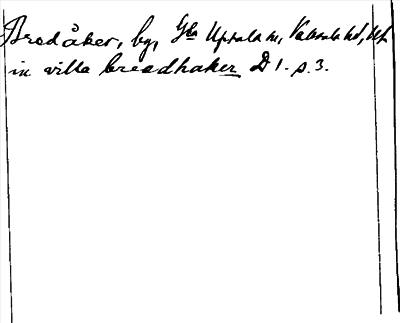 Bredåker, by, Gla Upsala sn, Vaksala hd, Upl.
in villa breadhaker D 1. s. 3.